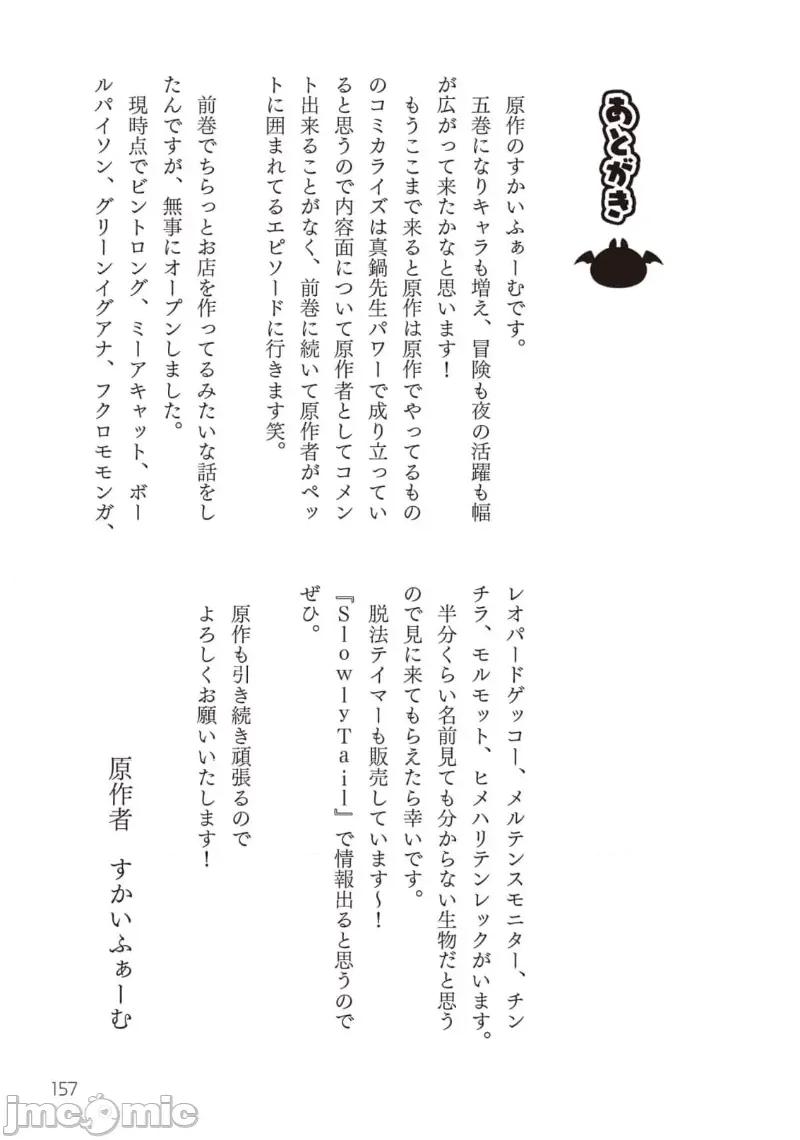 あとがき
原作のすかいふぁーむです。
五巻になりキャラも増え、冒険も夜の活躍も幅
が広がって来たかなと思います！
もうここまで来ると原作は原作でやってるもの
のコミカライズは真鍋先生パワーで成り立ってい
ると思うので内容面について原作者としてコメン
ト出来ることがなく、前巻に続いて原作者がペッ
トに囲まれてるエピソードに行きます笑。
前巻でちらっとお店を作ってるみたいな話をし
たんですが、無事にオープンしました。
現時点でビントロング、ミーアキャット、ボー
ルパイソン、グリーンイグアナ、フクロモモンガ、
レオパードゲッコー、メルテンスモニター、チン
チラ、モルモット、ヒメハリテンレックがいます。
半分くらい名前見ても分からない生物だと思う
ので見に来てもらえたら幸いです。
脱法テイマーも販売しています～！
『SlowlyTail』で情報出ると思うので
ぜひ。
原作も引き続き頑張るので
よろしくお願いいたします！
原作者 すかいふぁーむ
157
jmcomic